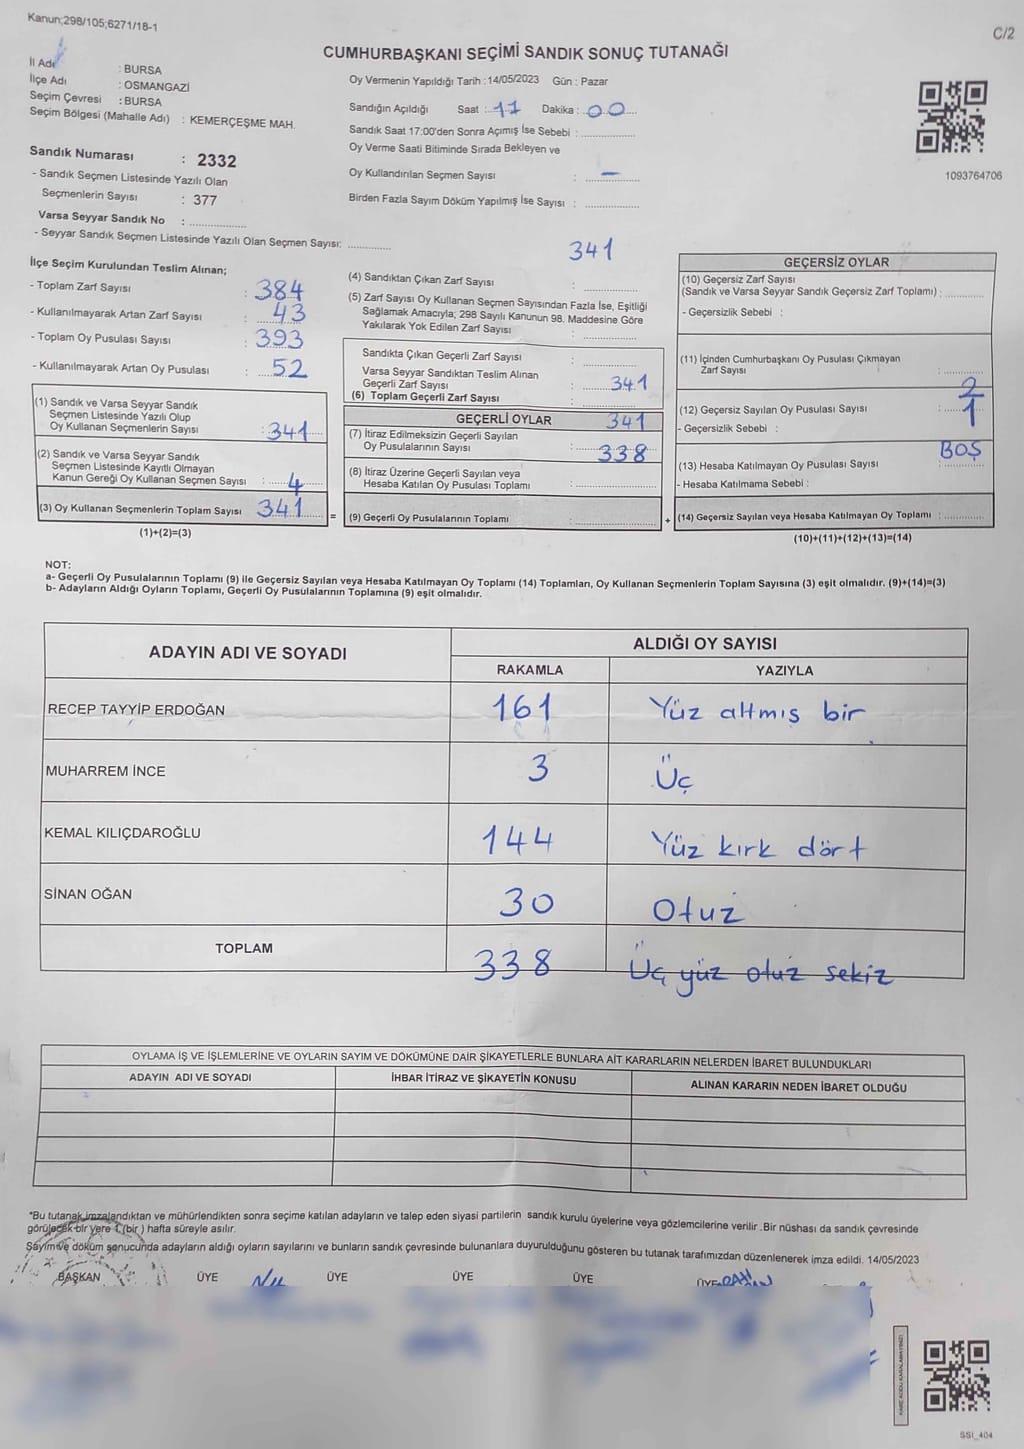 Kanun;298/105;6271/18-1
C/2
CUMHURBAŞKANI SEÇİMİ SANDIK SONUÇ TUTANAĞI
İl Adı : BURSA
İlçe Adı : OSMANGAZİ
Seçim Çevresi : BURSA
Seçim Bölgesi (Mahalle Adı) : KEMERÇEŞME MAH.
Oy Vermenin Yapıldığı Tarih : 14/05/2023 Gün : Pazar
Sandığın Açıldığı Saat : 17 Dakika : 00
Sandık Saat 17:00'den Sonra Açımış İse Sebebi :
Oy Verme Saati Bitiminde Sırada Bekleyen ve
Oy Kullandırılan Seçmen Sayısı : –
Birden Fazla Sayım Döküm Yapılmış İse Sayısı :
1093764706
Sandık Numarası : 2332
- Sandık Seçmen Listesinde Yazılı Olan
Seçmenlerin Sayısı : 377
Varsa Seyyar Sandık No :
- Seyyar Sandık Seçmen Listesinde Yazılı Olan Seçmen Sayısı:
İlçe Seçim Kurulundan Teslim Alınan;
- Toplam Zarf Sayısı : 384
- Kullanılmayarak Artan Zarf Sayısı : 43
- Toplam Oy Pusulası Sayısı : 393
- Kullanılmayarak Artan Oy Pusulası : 52
(1) Sandık ve Varsa Seyyar Sandık
Seçmen Listesinde Yazılı Olup
Oy Kullanan Seçmenlerin Sayısı : 341
(2) Sandık ve Varsa Seyyar Sandık
Seçmen Listesinde Kayıtlı Olmayan
Kanun Gereği Oy Kullanan Seçmen Sayısı : 4
(3) Oy Kullanan Seçmenlerin Toplam Sayısı 341 =
(1)+(2)=(3)
341
(4) Sandıktan Çıkan Zarf Sayısı :
(5) Zarf Sayısı Oy Kullanan Seçmen Sayısından Fazla İse, Eşitliği
Sağlamak Amacıyla; 298 Sayılı Kanunun 98. Maddesine Göre
Yakılarak Yok Edilen Zarf Sayısı :
Sandıkta Çıkan Geçerli Zarf Sayısı :
Varsa Seyyar Sandıktan Teslim Alınan
Geçerli Zarf Sayısı : 341
(6) Toplam Geçerli Zarf Sayısı :
GEÇERLİ OYLAR 341
(7) İtiraz Edilmeksizin Geçerli Sayılan
Oy Pusulalarının Sayısı : 338
(8) İtiraz Üzerine Geçerli Sayılan veya
Hesaba Katılan Oy Pusulası Toplamı :
(9) Geçerli Oy Pusulalarının Toplamı : +
GEÇERSİZ OYLAR
(10) Geçersiz Zarf Sayısı
(Sandık ve Varsa Seyyar Sandık Geçersiz Zarf Toplamı) :
- Geçersizlik Sebebi :
(11) İçinden Cumhurbaşkanı Oy Pusulası Çıkmayan
Zarf Sayısı : 2
(12) Geçersiz Sayılan Oy Pusulası Sayısı : 1
- Geçersizlik Sebebi :
BOŞ
(13) Hesaba Katılmayan Oy Pusulası Sayısı :
- Hesaba Katılmama Sebebi :
(14) Geçersiz Sayılan veya Hesaba Katılmayan Oy Toplamı :
(10)+(11)+(12)+(13)=(14)
NOT:
a- Geçerli Oy Pusulalarının Toplamı (9) ile Geçersiz Sayılan veya Hesaba Katılmayan Oy Toplamı (14) Toplamları, Oy Kullanan Seçmenlerin Toplam Sayısına (3) eşit olmalıdır. (9)+(14)=(3)
b- Adayların Aldığı Oyların Toplamı, Geçerli Oy Pusulalarının Toplamına (9) eşit olmalıdır.
ADAYIN ADI VE SOYADI ALDIĞI OY SAYISI
RAKAMLA YAZIYLA
RECEP TAYYİP ERDOĞAN 161 Yüz altmış bir
MUHARREM İNCE 3 Üç
KEMAL KILIÇDAROĞLU 144 Yüz kırk dört
SİNAN OĞAN 30 Otuz
TOPLAM 338 Üç yüz otuz sekiz
OYLAMA İŞ VE İŞLEMLERİNE VE OYLARIN SAYIM VE DÖKÜMÜNE DAİR ŞİKAYETLERLE BUNLARA AİT KARARLARIN NELERDEN İBARET BULUNDUKLARI
ADAYIN ADI VE SOYADI İHBAR İTİRAZ VE ŞİKAYETİN KONUSU ALINAN KARARIN NEDEN İBARET OLDUĞU
*Bu tutanak imzalandıktan ve mühürlendikten sonra seçime katılan adayların ve talep eden siyasi partilerin sandık kurulu üyelerine veya gözlemcilerine verilir .Bir nüshası da sandık çevresinde
görülecek bir yere 1 (bir ) hafta süreyle asılır.
Sayım ve döküm sonucunda adayların aldığı oyların sayılarını ve bunların sandık çevresinde bulunanlara duyurulduğunu gösteren bu tutanak tarafımızdan düzenlenerek imza edildi. 14/05/2023
BAŞKAN ÜYE ÜYE ÜYE ÜYE ÜYE
SSI_404